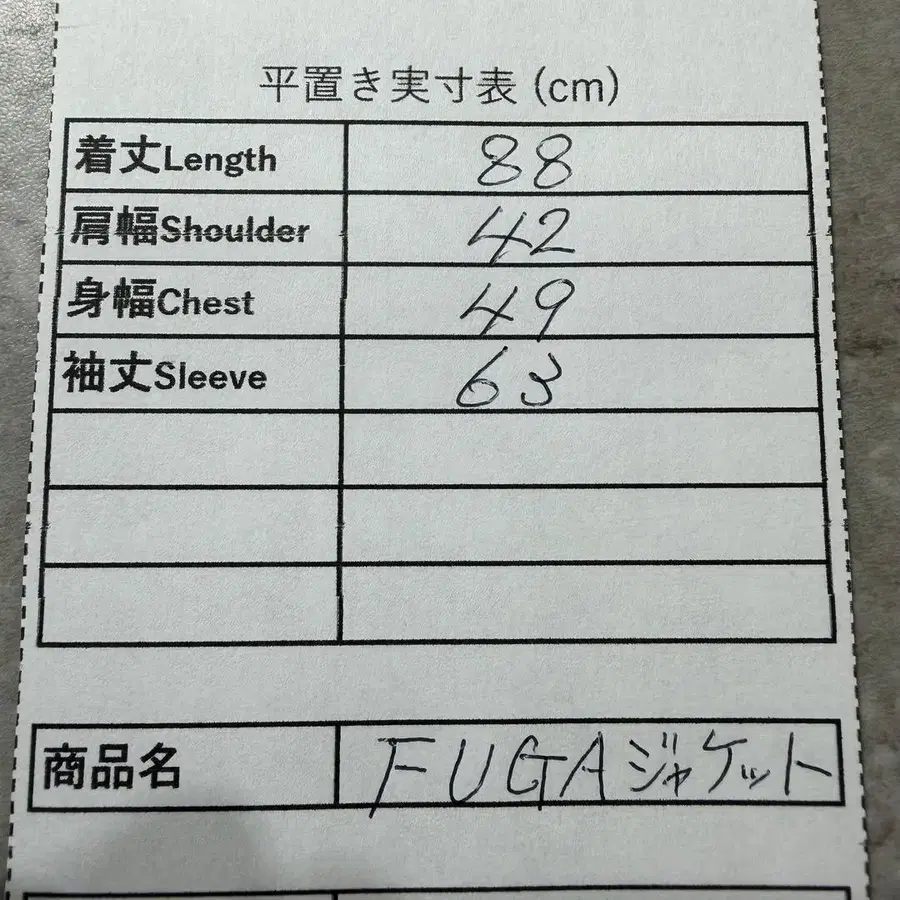 平置き実寸表 (cm)
着丈Length 88
肩幅Shoulder 42
身幅Chest 49
袖丈Sleeve 63
商品名 FUGAジャケット